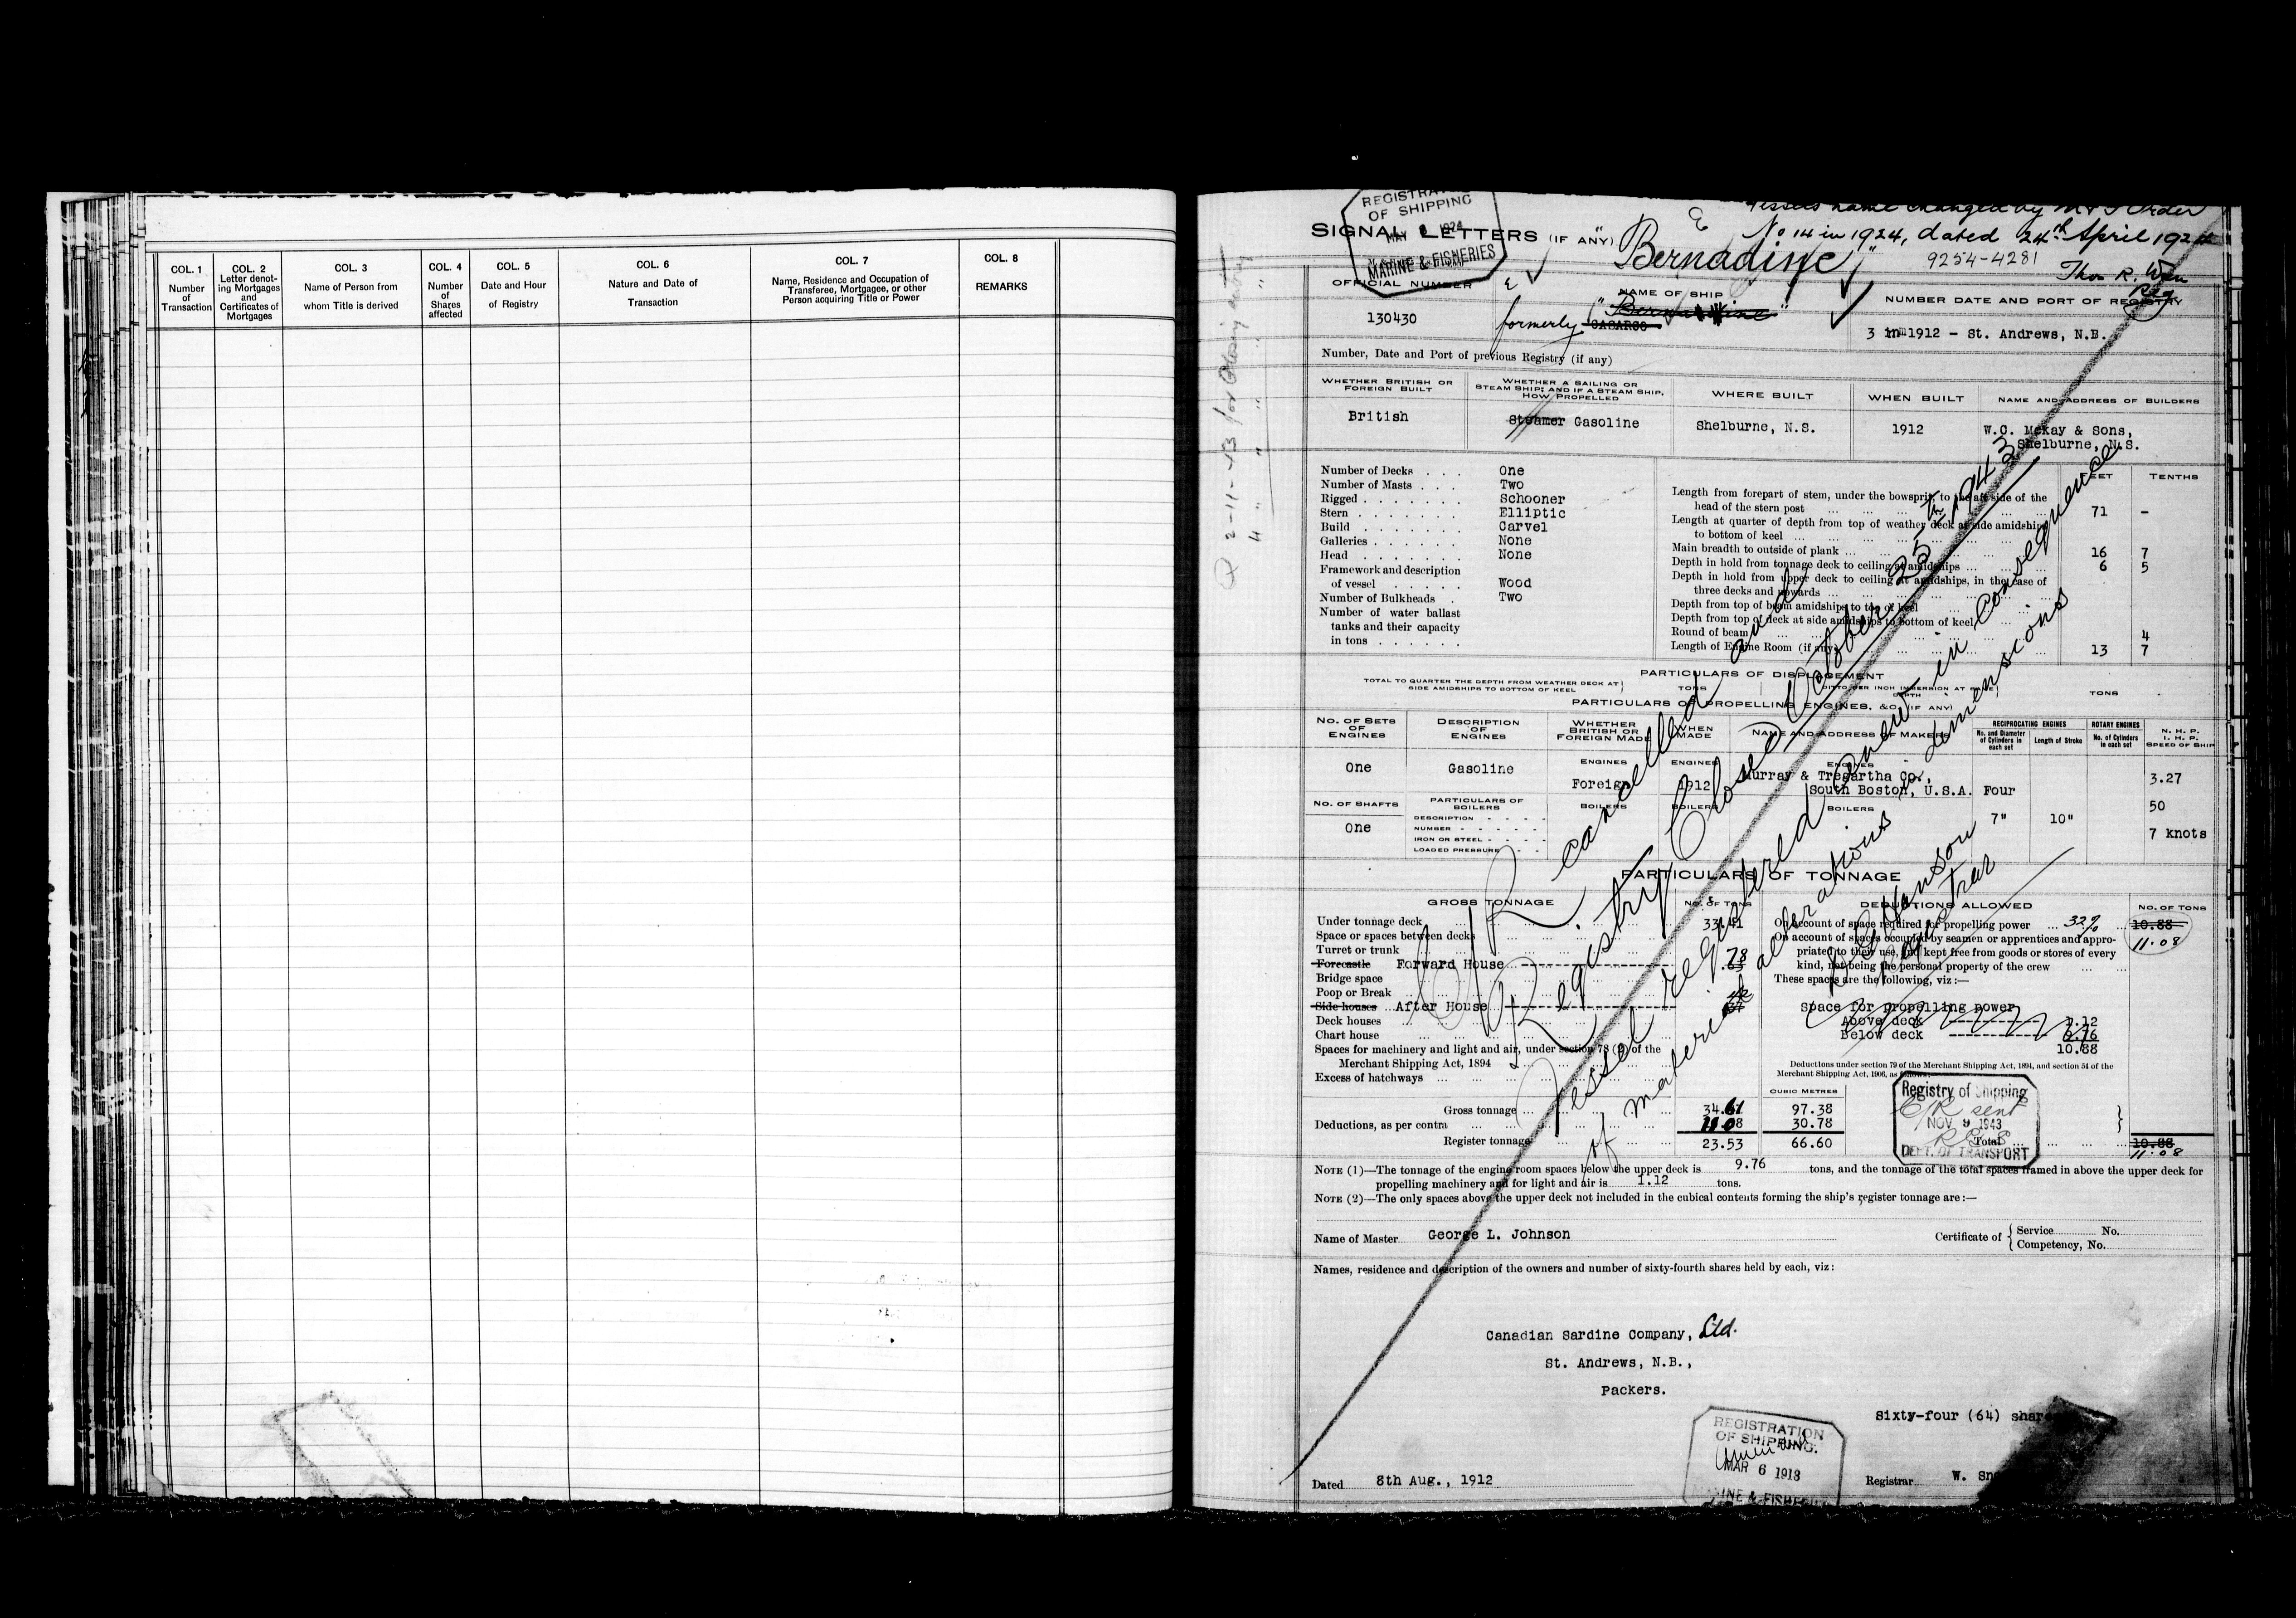 COL. 1
Number
of
Transaction
COL. 2
Letter denot-
ing Mortgages
and
Certificates of
Mortgages
COL. 3
Name of Person from
whom Title is derived
COL. 4
Number
of
Shares
affected
COL. 5
Date and Hour
of Registry
COL. 6
Nature and Date of
Transaction
COL. 7
Name, Residence and Occupation of
Transferee, Mortgagee, or other
Person acquiring Title or Power
COL. 8
REMARKS
2-11-43 for Closing entry
4 " " " "
Vessels name changed by M & F Order
No 14 in 1924, dated 24th April 1924
9254-4281
Thos R. Wren
Reg
REGISTRATION
OF SHIPPING
MAY 1924
MARINE & FISHERIES
SIGNAL LETTERS (IF ANY)
"Bernadine"
OFFICIAL NUMBER
130430
NAME OF SHIP
formerly
CASARCO
NUMBER DATE AND PORT OF REGISTRY
3 in 1912 - St. Andrews, N.B.
Number, Date and Port of previous Registry (if any)
WHETHER BRITISH OR
FOREIGN BUILT
British
WHETHER A SAILING OR
STEAM SHIP; AND IF A STEAM SHIP,
HOW PROPELLED
Steamer Gasoline
WHERE BUILT
Shelburne, N.S.
WHEN BUILT
1912
NAME AND ADDRESS OF BUILDERS
W.C. McKay & Sons,
Shelburne, N.S.
Number of Decks . . . One
Number of Masts . . . Two
Rigged . . . . . . . Schooner
Stern . . . . . . . Elliptic
Build . . . . . . . Carvel
Galleries . . . . . . None
Head . . . . . . . None
Framework and description
of vessel . . . . . Wood
Number of Bulkheads . . Two
Number of water ballast
tanks and their capacity
in tons . . . . . .
FEET TENTHS
Length from forepart of stem, under the bowsprit, to the aft side of the
head of the stern post 71 -
Length at quarter of depth from top of weather deck at side amidships
to bottom of keel
Main breadth to outside of plank 16 7
Depth in hold from tonnage deck to ceiling at amidships 6 5
Depth in hold from upper deck to ceiling at amidships, in the case of
three decks and upwards
Depth from top of beam amidships to top of keel
Depth from top of deck at side amidships to bottom of keel
Round of beam 4
Length of Engine Room (if any) 13 7
PARTICULARS OF DISPLACEMENT
TOTAL TO QUARTER THE DEPTH FROM WEATHER DECK AT
SIDE AMIDSHIPS TO BOTTOM OF KEEL
TONS
DITTO PER INCH IMMERSION AT SAME
DEPTH
TONS
PARTICULARS OF PROPELLING ENGINES, &C. (IF ANY)
NO. OF SETS
OF
ENGINES
DESCRIPTION
OF
ENGINES
WHETHER
BRITISH OR
FOREIGN MADE
WHEN
MADE
NAME AND ADDRESS OF MAKERS
RECIPROCATING ENGINES
No. and Diameter
of Cylinders in
each set
Length of Stroke
ROTARY ENGINES
No. of Cylinders
in each set
N. H. P.
I. H. P.
SPEED OF SHIP
One
Gasoline
ENGINES
Foreign
ENGINES
1912
ENGINES
Murray & Tregartha Co.,
South Boston, U.S.A.
Four
3.27
50
7 knots
7" 10"
NO. OF SHAFTS
One
PARTICULARS OF
BOILERS
DESCRIPTION
NUMBER
IRON OR STEEL
LOADED PRESSURE
BOILERS
BOILERS
BOILERS
PARTICULARS OF TONNAGE
GROSS TONNAGE NO. OF TONS
Under tonnage deck 33.41
Space or spaces between decks
Turret or trunk
Forecastle Forward House 78
Bridge space
Poop or Break
Side houses After House 42
Deck houses
Chart house
Spaces for machinery and light and air, under section 78 (2) of the
Merchant Shipping Act, 1894
Excess of hatchways
CUBIC METRES
Gross tonnage 34.61 97.38
Deductions, as per contra 11.08 30.78
Register tonnage 23.53 66.60
DEDUCTIONS ALLOWED NO. OF TONS
On account of space required for propelling power 32% 10.88
11.08
On account of spaces occupied by seamen or apprentices and appro-
priated to their use, and kept free from goods or stores of every
kind, not being the personal property of the crew
These spaces are the following, viz:—
Space for propelling power
Above deck 1.12
Below deck 9.76
10.88
Deductions under section 79 of the Merchant Shipping Act, 1894, and section 54 of the
Merchant Shipping Act, 1906, as follows:
Registry of Shipping
C/R sent
NOV 9 1943
DEPT. OF TRANSPORT
Total 10.88
11.08
NOTE (1)—The tonnage of the engine room spaces below the upper deck is 9.76 tons, and the tonnage of the total spaces framed in above the upper deck for
propelling machinery and for light and air is 1.12 tons.
NOTE (2)—The only spaces above the upper deck not included in the cubical contents forming the ship's register tonnage are:—
Name of Master George L. Johnson
Certificate of
Service No.
Competency, No.
Names, residence and description of the owners and number of sixty-fourth shares held by each, viz:
Canadian Sardine Company, Ltd.
St. Andrews, N.B.,
Packers.
Sixty-four (64) shar
REGISTRATION
OF SHIPPING.
MAR 6 1913
MARINE & FISHERIES
Dated 8th Aug., 1912
Registrar W. Sn
C/R cancelled and
Registry Closed October 25th 1943
Vessel registered anew in consequence
of material alterations in dimensions
Registrar